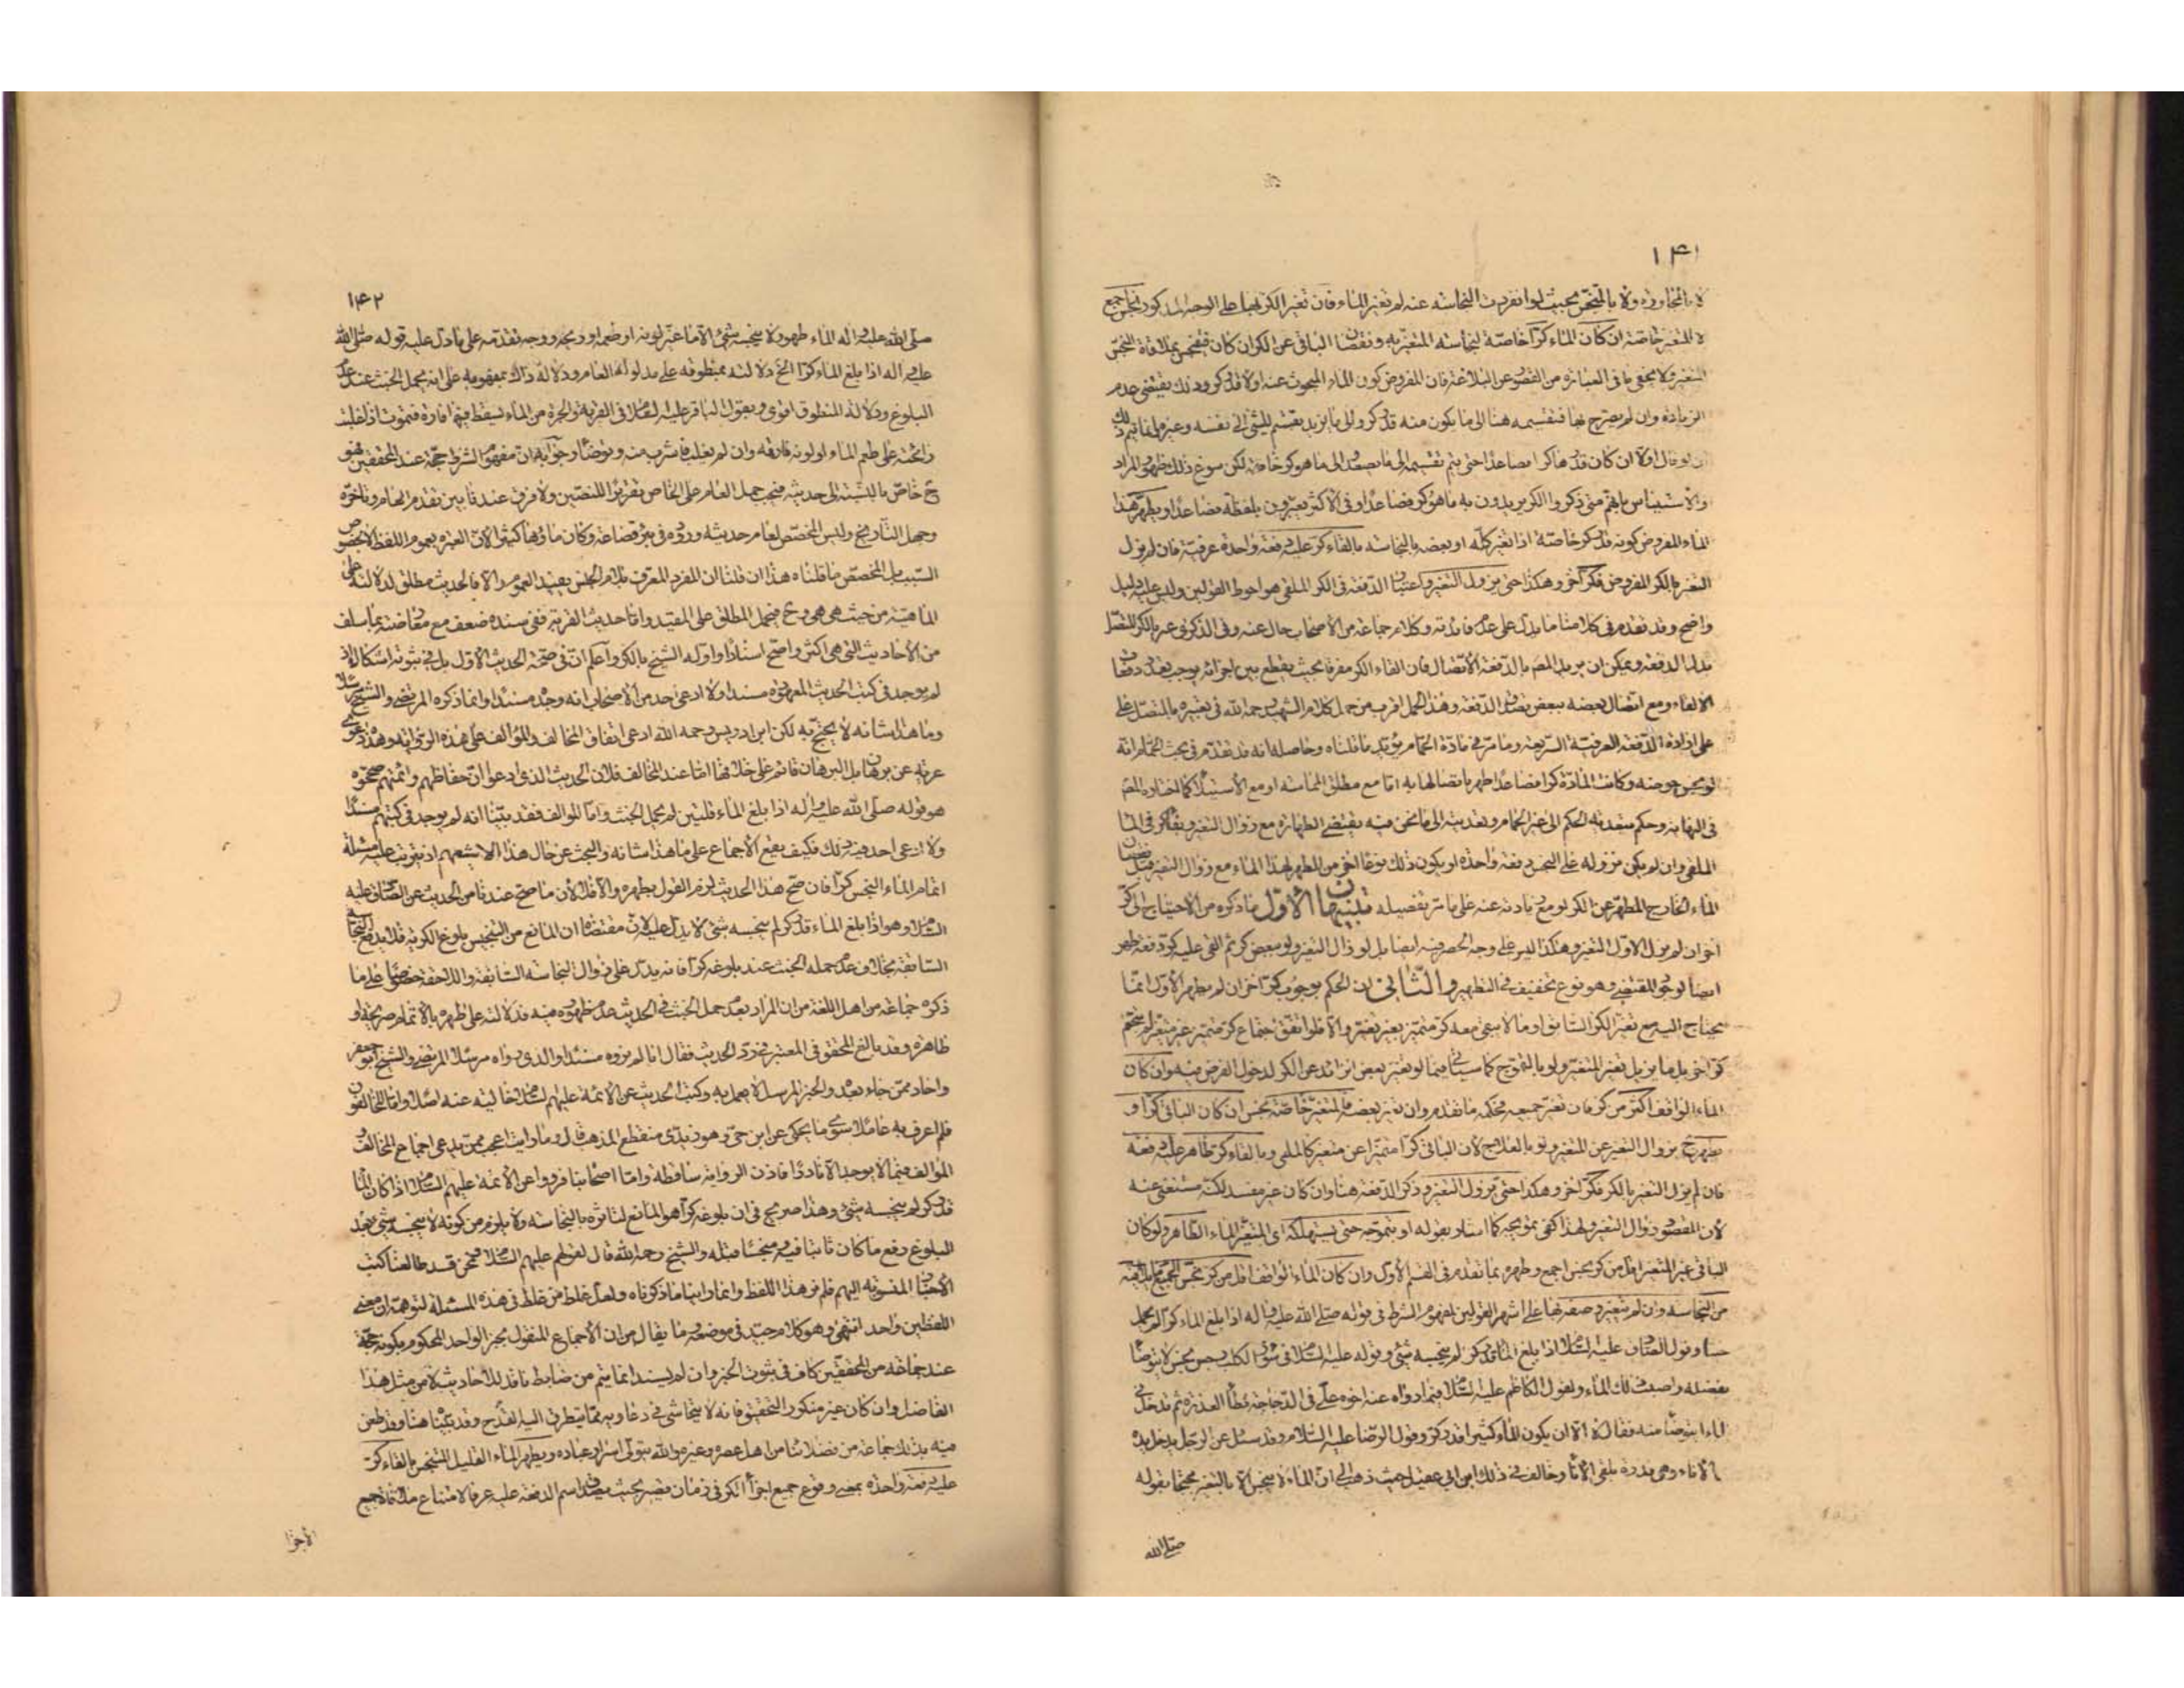 ١٤١
لا بالمجاورة ولا بالمتنجس بحيث لو انفردت النجاسة عنه لم تغير الماء فان تغير الكر بها على الوجه المذكور نجس جميع
لا المتغير خاصة ان كان الماء كرا خاصة لنجاسة المتغير به ونقصان الباقى عن الكر ان كان فينجس بملاقاة النجس
المتغير ولا يخفى ما فى العبارة من القصور عن البلاغة فان المفروض كون الماء المبحوث عنه اولا قدر كر وذلك يقتضى عدم
الزيادة وان لم يصرح بها فتقسيمه هنا الى ما يكون منه قدر كر والى ما يزيد تقسيم للشئ الى نفسه وغيره وانما يتم ذلك
ان لو قال اولا ان كان قدرها كرا فصاعدا حتى يتم تقسيمه الى ما يصعد الى ما هو كر خاصة لكن سوغ ذلك ظهور المراد
والاستيناس بانهم متى ذكروا الكر يريدون به ما هو كر فصاعدا وفى الاكثر يعبرون بلفظة فصاعدا ويطهر هذا
الماء المفروض كونه قدر كر خاصة اذا تغير كله او بعضه بالنجاسة بالقاء كر عليه دفعة واحدة عرفية فان لم يزل
التغير بالكر المفروض فكر آخر وهكذا حتى يزول التغير واعتبار الدفعة فى الكر الملقى هو احوط القولين وليس عليه دليل
واضح وقد تقدم فى كلامنا ما يدل على عدم فائدته وكلام جماعة من الاصحاب خال عنه وفى الذكرى عبر بالكر المتصل
بدل الدفعة ويمكن ان يريد المصـ بالدفعة الاتصال فان القاء الكر مفرقا بحيث يقطع بين اجزائه يوجب تعدد دفعات
الالقاء ومع اتصال بعضه ببعض تصدق الدفعة وهذا الحمل اقرب من حمل كلام الشهيد رحمه الله فى تعبيره بالمتصل على
على ارادة الدفعة العرفية السريعة وما مر فى مادة الحمام يؤيد ما قلناه وحاصله انه قد تقدم فى بحث الحمام انه
لو نجس حوضه وكانت المادة كرا فصاعدا طهر باتصالها به اما مع مطلق المماسة او مع الاستيلاء كما اختاره المصـ
فى النهاية وحكم بتعدية الحكم الى غير الحمام وتعديته الى ما نحن فيه يقتضى الطهارة مع زوال التغير وبقاء كر فى الماء
الملقى وان لم يكن نزوله على النجس دفعة واحدة او يكون ذلك نوعا آخر من المطهر لهذا الماء مع زوال التغير قبل نقصان
الماء الخارج المطهر عن الكر او مع زيادته عنه على ما مر تفصيله تنبيهان الاول ما ذكره من الاحتياج الى كر
اخر ان لم يزل الاول التغير وهكذا ليس على وجه الحصر فيه ايضا بل لو زال التغير ولو ببعض كر ثم القى عليه كر دفعة طهر
ايضا لوجود المقتضى وهو نوع تخفيف فى التطهير والثانى ان الحكم بوجوب كر آخر ان لم يطهر الاول انما
يحتاج اليه مع تغير الكر السابق او ما لا يبقى معه كر متميز بغير تغير والا فلو اتفق اجتماع كر متميز غير متغير لم يتحتم
كر اخر بل ما يزيل تغير المتغير ولو بالتموج كما سيأتى فيما لو تغير بعض الزائد عن الكر لدخول الفرض فيه وان كان
الماء الواقف اكثر من كر فان تغير جميعه فحكمه ما تقدم وان تغير بعضه فالمتغير خاصة نجس ان كان الباقى كرا و
يطهر ح بزوال التغير عن المتغير ولو بالعلاج لان الباقى كرا متميزا عن متغير كالملقى وبالقاء كر طاهر عليه دفعة
فان لم يزل التغير بالكر فكر آخر وهكذا حتى يزول التغير وذكر الدفعة هنا وان كان غير مفسد لكنه مستغنى عنه
لان المقصود زوال التغير ولهذا كفى بموجبه كما اشار بقوله او بتموجه حتى يستهلكه اى المتغير الماء الطاهر ولو كان
الباقى غير المتغير اقل من كر نجس اجمع وطهره بما تقدم فى القسم الاول وان كان الماء الواقف اقل من كر نجس الجميع بملاقيه
من النجاسة وان لم تتغير وصفه بها على اشهر القولين لمفهوم الشرط فى قوله صلى الله عليه واله اذا بلغ الماء كرا لم يحمل
خبثا وقول الصادق عليه السلام اذا بلغ الماء قدر كر لم ينجسه شئ وقوله عليه السلام فى سؤر الكلب رجس نجس لا يتوضأ
بفضله واصبب ذلك الماء ولقول الكاظم عليه السلام فيما رواه عنه اخوه على فى الدجاجة تطأ العذرة ثم تدخل فى
الماء ايتوضأ منه فقال لا الا ان يكون الماء كثيرا قدر كر وقول الرضا عليه السلام وقد سئل عن الرجل يدخل يده
الاناء وهى قذرة يلقى الاناء وخالف فى ذلك ابن ابى عقيل حيث ذهب الى ان الماء لا ينجس الا بالتغير محتجا بقوله
صلى الله
١٤٢
صلى الله عليه واله الماء طهور لا ينجسه شئ الا ما غير لونه او طعمه او ريحه ووجه تقدمه على ما دل عليه قوله صلى الله
عليه اله اذا بلغ الماء كرا الخ دلالته بمنطوقه على مدلوله العام ودلالة ذاك بمفهومه على انه يحمل الخبث عند عدم
البلوغ ودلالة المنطوق اقوى وبقول الباقر عليه السلام فى القربة والجرة من الماء يسقط فيها فارة فتموت اذا غلبت
رائحته على طعم الماء او لونه فارقه وان لم يغلب فاشرب منه وتوضأ وجوابه ان مفهوم الشرط حجة عند المحققين فهو
ح خاص بالنسبة الى حديثه فيجب حمل العام على الخاص تقريرا للنصين ولا فرق عندنا بين تقدم العام وتاخره
وجهل التاريخ وليس المخصص لعام حديثه وروده فى بئر قضاعة وكان ماؤها كثيرا لان العبرة بعموم اللفظ لا بخصوص
السبب بل المخصص ما قلناه هذا ان قلنا ان المفرد المعرف بلام الجنس يفيد العموم والا فالحديث مطلق لدلالته على
الماهية من حيث هى هى وح فيحمل المطلق على المقيد واما حديث القربة ففى سنده ضعف مع معارضته بما سلف
من الاحاديث التى هى اكثر واضح اسنادا واوله الشيخ بالكر واعلم ان فى صحة الحديث الاول بل فى ثبوته اشكالا اذ
لم يوجد فى كتب الحديث المعهودة مسندا ولا ادعى احد من الاصحاب انه وجده مسندا وانما ذكره المرتضى والشيخ مرسلا
وما هذا شانه لا يحتج به لكن ابن ادريس رحمه الله ادعى اتفاق المخالف والمؤالف على هذه الرواية وهذه دعوى
عرية عن برهان بل البرهان قائم على خلافها اما عند المخالف فلان الحديث الذى ادعوا ان حفاظهم وائمتهم صححوه
هو قوله صلى الله عليه واله اذا بلغ الماء قلتين لم يحمل الخبث واما المؤالف فقد بينا انه لم يوجد فى كتبهم مسندا
ولا ادعى احد فيه ذلك فكيف يقع الاجماع على ما هذا شانه والبحث عن حال هذا الا بشعبهم اذ يترتب عليه مسئلة
اتمام الماء النجس كرا فان صح هذا الحديث لزم القول بطهره والا فلا لان ما صح عندنا من الحديث عن الصادق عليه
السلام وهو اذا بلغ الماء قدر كر لم ينجسه شئ لا يدل عليه لان مقتضاه ان المانع من التنجيس بلوغ الكرية فلا يدفع النجاسة
السابقة بخلاف عدم حمله الخبث عند بلوغه كرا فانه يدل على زوال النجاسة السابقة واللاحقة خصوصا على ما
ذكره جماعة من اهل اللغة من ان المراد بعدم حمل الخبث فى الحديث عدم ظهوره فيه فدلالته على طهره بالاتمام صريحة او
ظاهرة وقد بالغ المحقق فى المعتبر فى رد الحديث فقال انا لم نروه مسندا والذى رواه مرسلا المرتضى والشيخ ابو جعفر
واحاد ممن جاء بعده والخبر المرسل لا يعمل به وكتب الحديث عن الائمة عليهم السلام خالية عنه اصلا واما المخالفون
فلم اعرف به عاملا سوى ما يحكى عن ابن حى وهو زيدى منقطع المذهب قال وما رايت اعجب ممن يدعى اجماع المخالف و
المؤالف فيما لا يوجد الا نادرا فاذن الرواية ساقطة واما اصحابنا فرووا عن الائمة عليهم السلام اذا كان الماء
قدر كر لم ينجسه شئ وهذا صريح فى ان بلوغه كرا هو المانع لتاثره بالنجاسة ولا يلزم من كونه لا ينجسه شئ بعد
البلوغ رفع ما كان ثابتا فيه ومنجسا قبله والشيخ رحمه الله قال لقولهم عليهم السلام ونحن قد طالعنا كتب
الاخبار المنسوبة اليهم فلم نر هذا اللفظ وانما راينا ما ذكرناه ولعل غلط من غلط فى هذه المسئلة لتوهمه ان معنى
اللفظين واحد انتهى وهو كلام جيد فى موضعه وما يقال من ان الاجماع المنقول بخبر الواحد المحكوم بكونه حجة
عند جماعة من المحققين كاف فى ثبوت الخبر وان لم يسند انما يتم من ضابط ناقد للاحاديث لا من مثل هذا
الفاضل وان كان غير منكور التحقيق فانه لا يتحاشى فى دعاويه مما يتطرق اليه القدح وقد بيناه هنا وقد طعن
فيه بذلك جماعة من فضلائنا من اهل عصره وغيره والله يتولى اسرار عباده ويطهر الماء القليل المتنجس بالقاء كر
عليه دفعة واحدة بمعنى وقوع جميع اجزاء الكر فى زمان قصير بحيث يصدق اسم الدفعة عليه عرفا لامتناع ملاقاة جميع
الاجزا